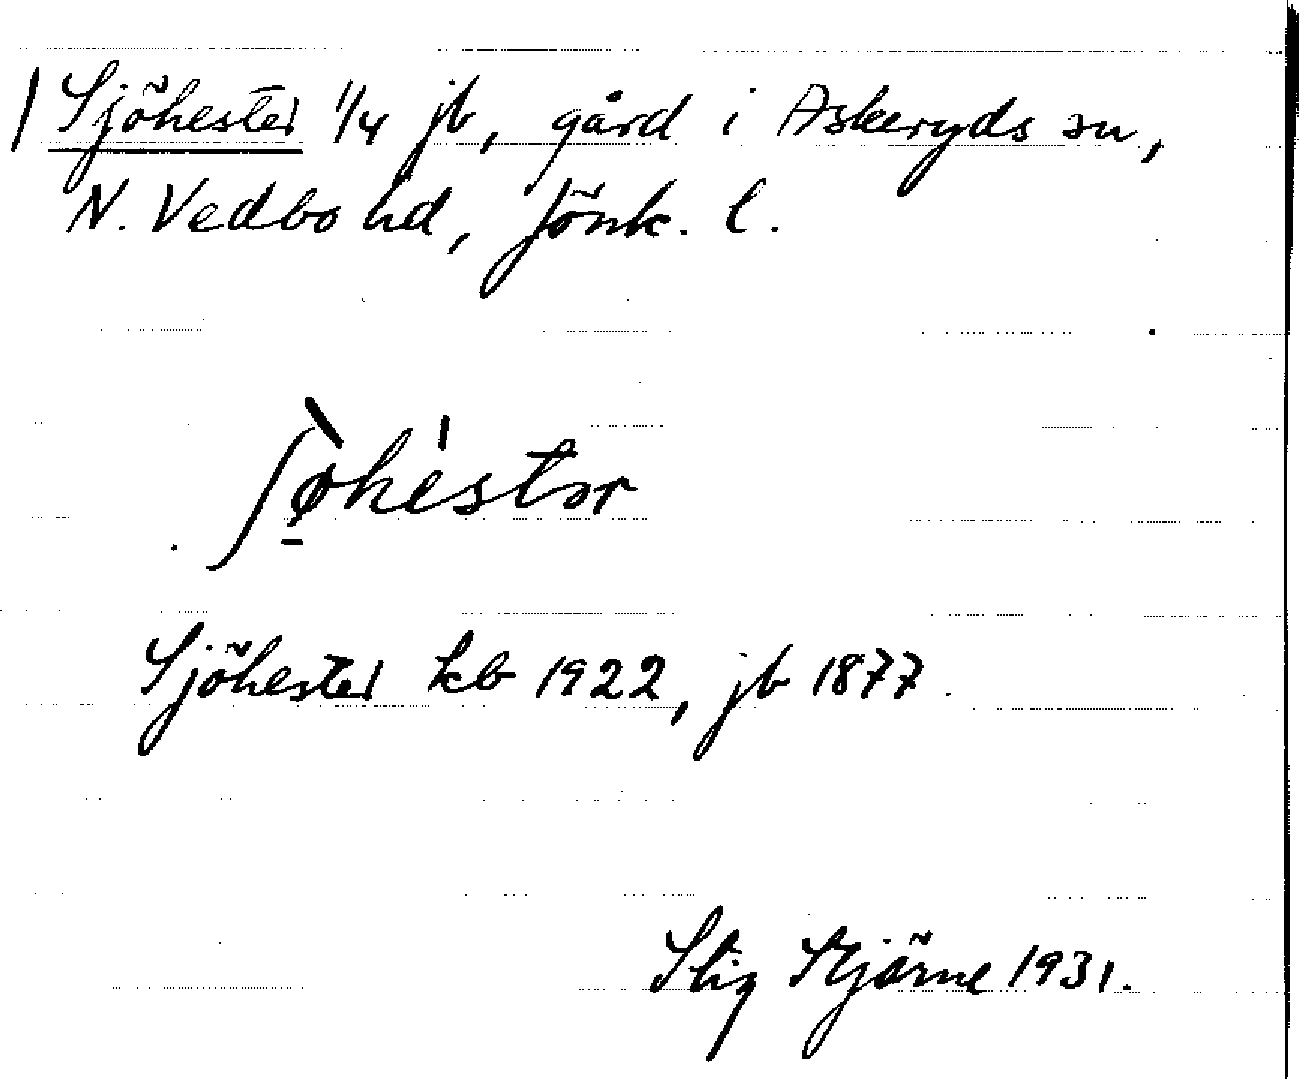 Sjöhester 1/4 jb, gård i Askeryds sn,
N. Vedbo hd, Jönk. l.
ʃø̀hèstor
Sjöhester kb 1922, jb 1877.
Stig Stjärne 1931.